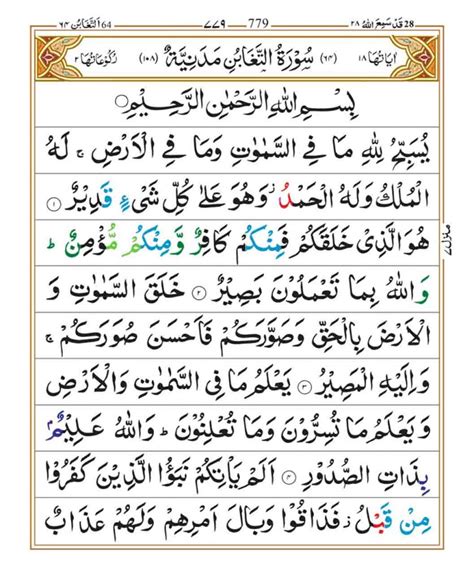 28 قَدْ سَمِعَ اللهُ ٢٨ 779 ٧٧٩ 64 اَلتَّغَابُن ٦٤
اٰيَاتُهَا ١٨ (٦٤) سُوْرَةُ التَّغَابُنِ مَدَنِيَّةٌ (١٠٨) رُكُوْعَاتُهَا ٢
بِسْمِ اللهِ الرَّحْمٰنِ الرَّحِيْمِ
يُسَبِّحُ لِلّٰهِ مَا فِي السَّمٰوٰتِ وَمَا فِي الْاَرْضِ ۚ لَهُ
الْمُلْكُ وَلَهُ الْحَمْدُ ۡ وَهُوَ عَلٰى كُلِّ شَیْءٍ قَدِيْرٌ ۝١
هُوَ الَّذِيْ خَلَقَكُمْ فَمِنْكُمْ كَافِرٌ وَّمِنْكُمْ مُّؤْمِنٌ ؕ
وَاللهُ بِمَا تَعْمَلُوْنَ بَصِيْرٌ ۝٢ خَلَقَ السَّمٰوٰتِ وَ
الْاَرْضَ بِالْحَقِّ وَصَوَّرَكُمْ فَاَحْسَنَ صُوَرَكُمْ ۚ
وَاِلَيْهِ الْمَصِيْرُ ۝٣ يَعْلَمُ مَا فِي السَّمٰوٰتِ وَالْاَرْضِ
وَيَعْلَمُ مَا تُسِرُّوْنَ وَمَا تُعْلِنُوْنَ ؕ وَاللهُ عَلِيْمٌۢ
بِذَاتِ الصُّدُوْرِ ۝٤ اَلَمْ يَاْتِكُمْ نَبَؤُا الَّذِيْنَ كَفَرُوْا
مِنْ قَبْلُ ۡ فَذَاقُوْا وَبَالَ اَمْرِهِمْ وَلَهُمْ عَذَابٌ
منزل ٧